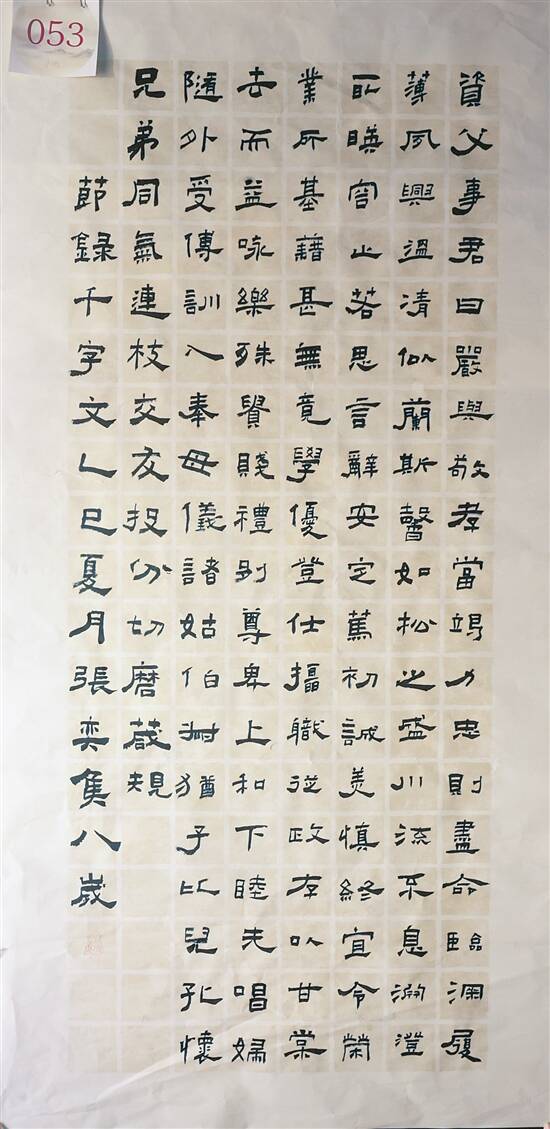 053
資父事君曰嚴與敬孝當竭力忠則盡命臨深履
薄夙興溫凊似蘭斯馨如松之盛川流不息淵澄
取暎容止若思言辭安定篤初誠美慎終宜令榮
業所基藉甚無竟學優登仕攝職從政存以甘棠
去而益咏樂殊貴賤禮別尊卑上和下睦夫唱婦
隨外受傅訓入奉母儀諸姑伯叔猶子比兒孔懷
兄弟同氣連枝交友投分切磨箴規
節錄千字文乙巳夏月張奕隽八歲